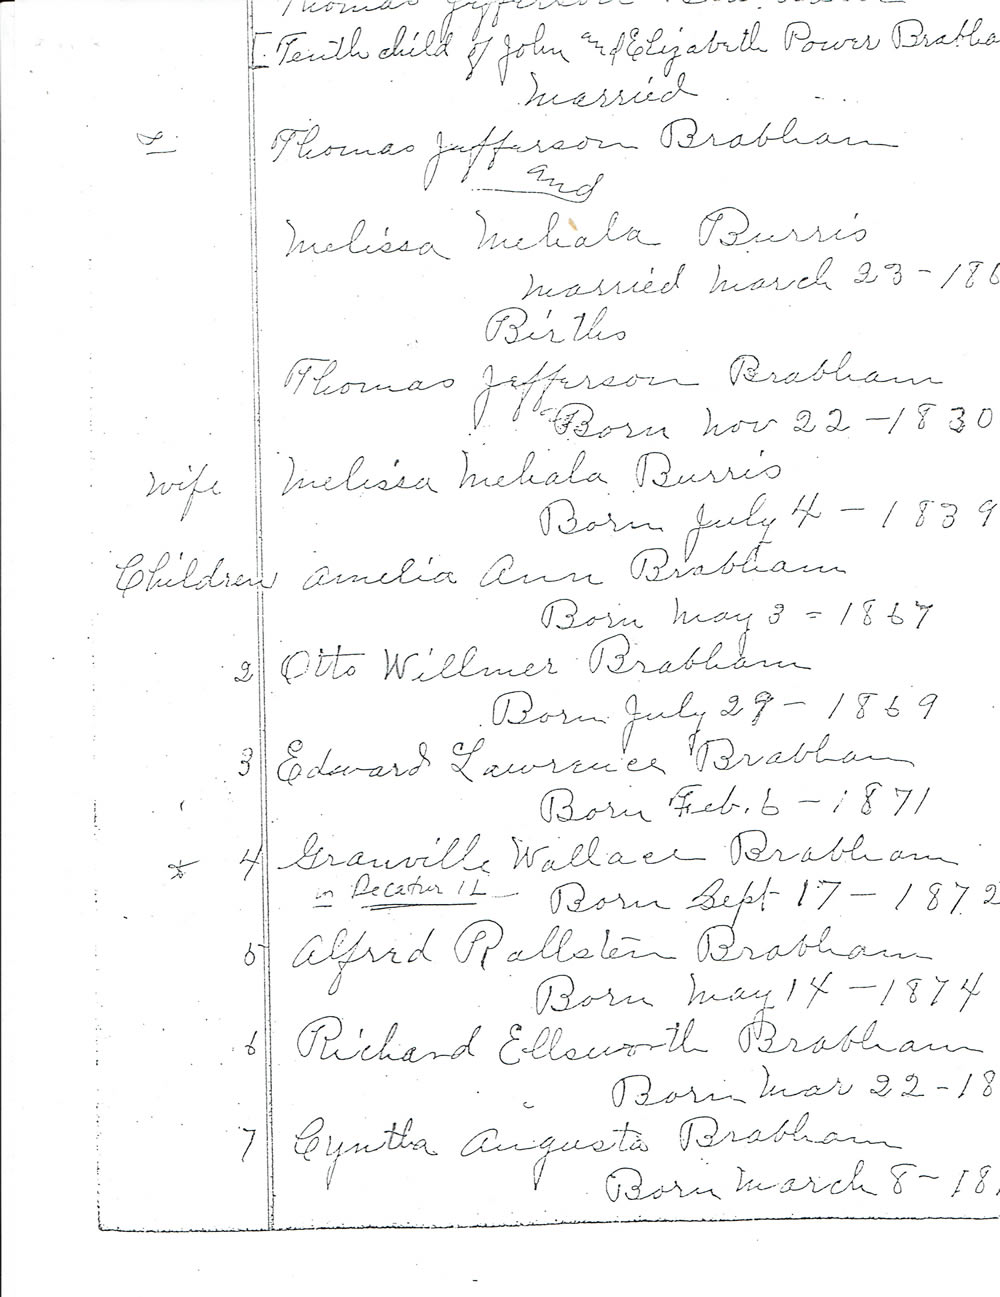 Thomas Jefferson
Tenth child of John and Elizabeth Power Brabha
Married
Thomas Jefferson Brabham
and
Melissa Mehala Burris
Married March 23-186
Births
Thomas Jefferson Brabham
Born Nov 22-1830
Wife Melissa Mehala Burris
Born July 4-1839
Children Amelia Ann Brabham
Born May 3=1867
2 Otto Willmer Brabham
Born July 29-1869
3 Edward Lawrence Brabham
Born Feb. 6-1871
4 Granville Wallace Brabham
in Decatur IL - Born Sept 17-1872
5 Alfred Rallsten Brabham
Born May 14-1874
6 Richard Ellsworth Brabham
Born Mar 22-18
7 Cyntha Augusta Brabham
Born March 8-18